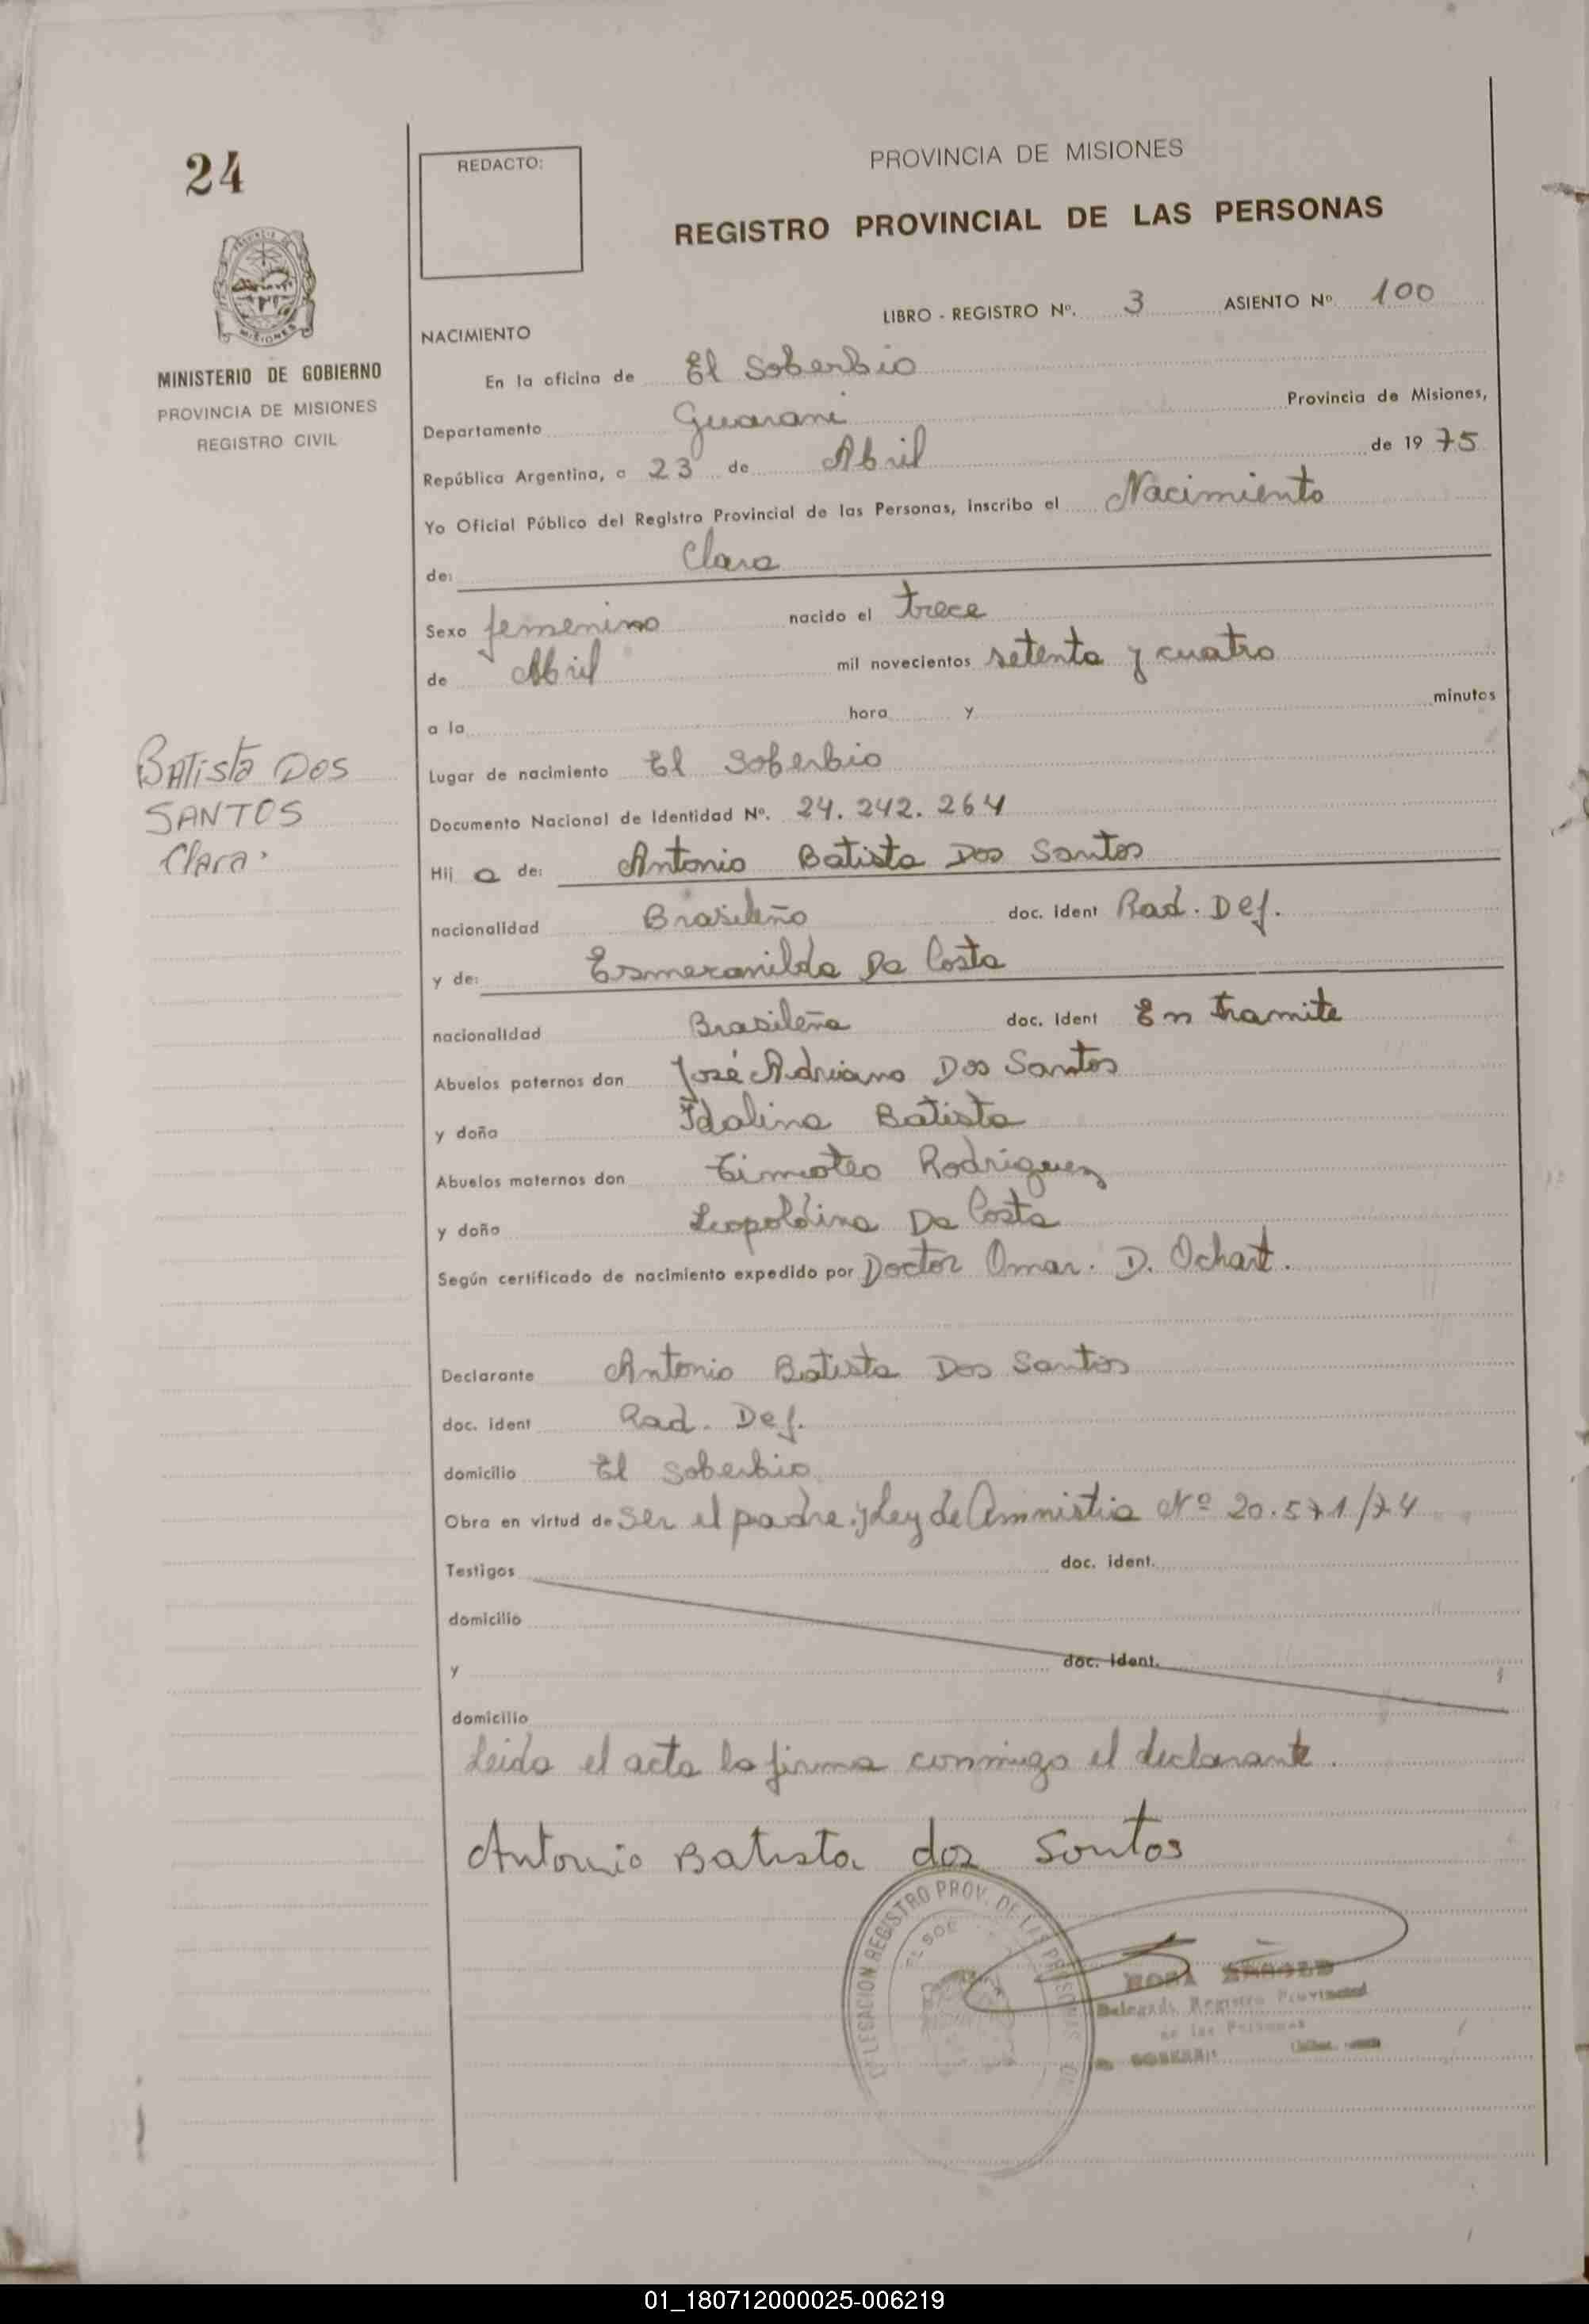 24
REDACTO:
PROVINCIA DE MISIONES
REGISTRO PROVINCIAL DE LAS PERSONAS
MISIONES
MINISTERIO DE GOBIERNO
PROVINCIA DE MISIONES
REGISTRO CIVIL
LIBRO - REGISTRO Nº. 3 ASIENTO Nº. 100
NACIMIENTO
En la oficina de El Soberbio
Departamento Guarani Provincia de Misiones,
República Argentina, a 23 de Abril de 19 75
Yo Oficial Público del Registro Provincial de las Personas, inscribo el Nacimiento
de: Clara
Sexo femenino nacido el trece
de Abril mil novecientos setenta y cuatro
a la hora y minutos
Lugar de nacimiento El Soberbio
Batista Dos
SANTOS
Clara.
Documento Nacional de Identidad Nº. 24.242.264
Hij a de: Antonio Batista Dos Santos
nacionalidad Brasileño doc. ident Rad. Def.
y de: Esmeranilda Da Costa
nacionalidad Brasileña doc. ident En tramite
Abuelos paternos don José Adriano Dos Santos
y doña Idalina Batista
Abuelos maternos don Timoteo Rodriguez
y doña Leopoldina Da Costa
Según certificado de nacimiento expedido por Doctor Omar. D. Ochart.
Declarante Antonio Batista Dos Santos
doc. ident Rad. Def.
domicilio El Soberbio
Obra en virtud de Ser el padre. y Ley de Amnistia Nº 20.571/74
Testigos doc. ident.
domicilio
y doc. ident.
domicilio
Leida el acta la firma conmigo el declarante.
Antonio Batista dos Santos
DELEGACION REGISTRO PROV. DE LAS PERSONAS
EL SOB
Delegada Registro Provincial
de las Personas
01_180712000025-006219